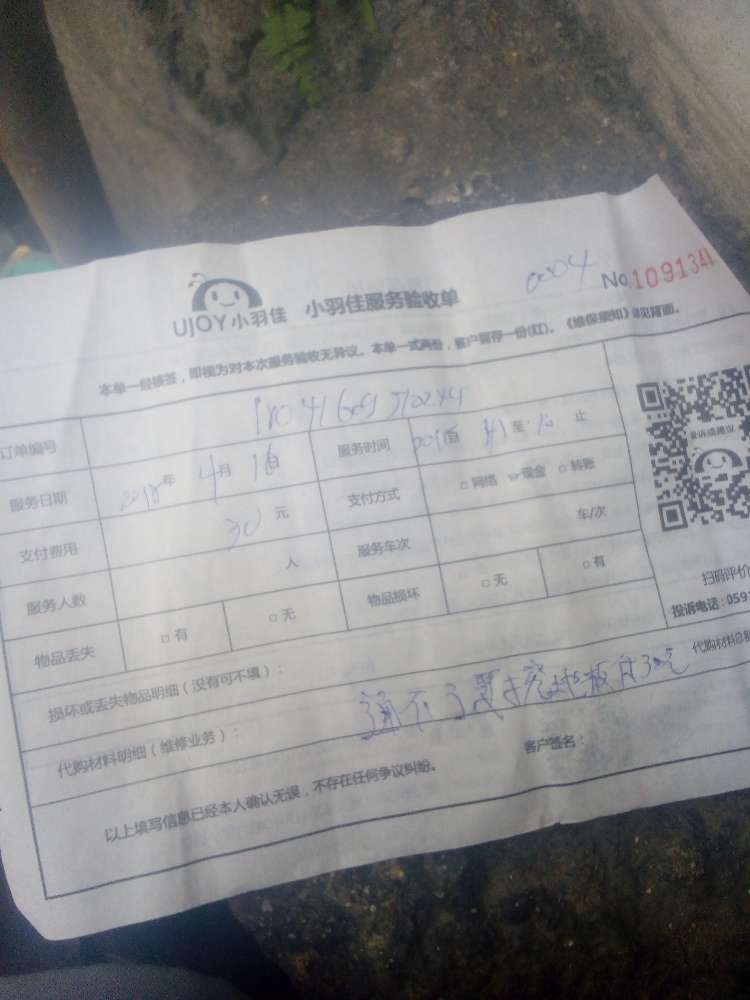 0004
No 1091344
UJOY小羽佳 小羽佳服务验收单
本单一经核签，即视为对本次服务验收无异议。本单一式两份，客户留存一份(红)。《维保须知》详见背面。
订单编号
服务日期 2018年 4月 16日 服务时间 至 止
支付费用 30 元 支付方式 □网络 现金 □转账
服务人数 人 服务车次 车/次
物品丢失 □有 □无 物品损坏 □无 □有
投诉或建议
扫码评价
投诉电话：059
损坏或丢失物品明细（没有可不填）：
代购材料总额
代购材料明细（维修业务）： 通不了要 地板 30元
以上填写信息已经本人确认无误，不存在任何争议纠纷。 客户签名：